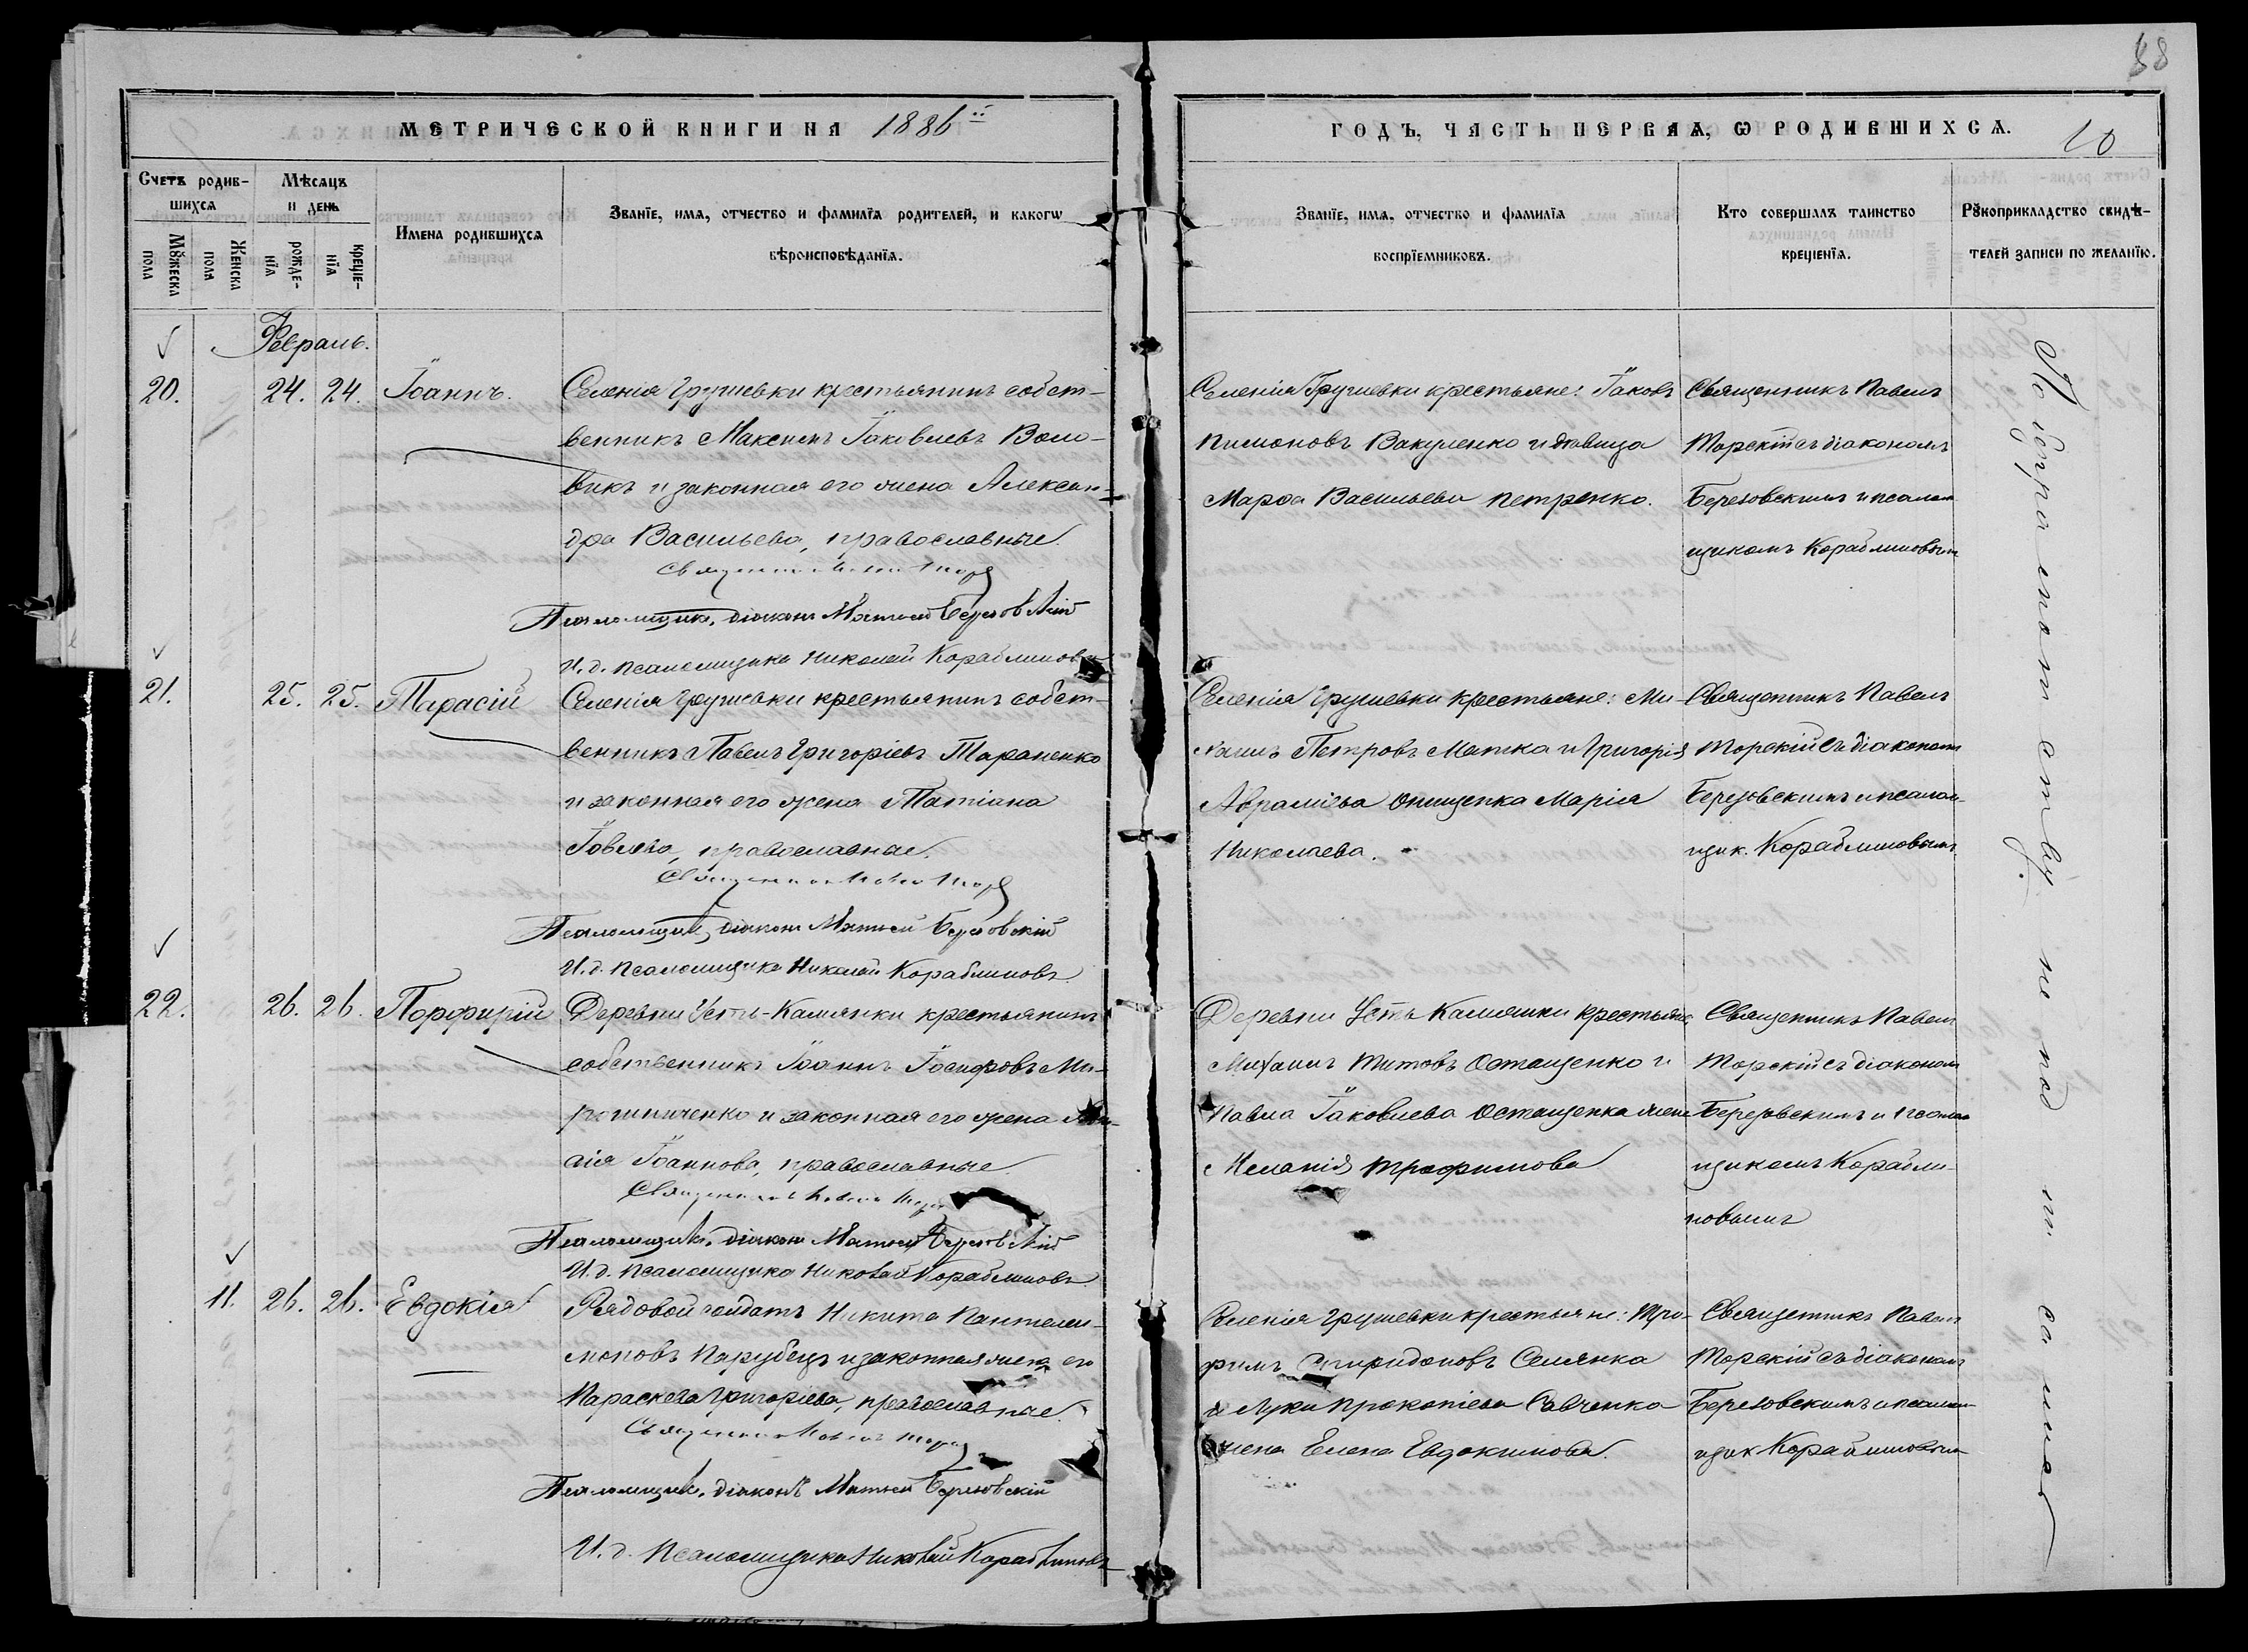 88
МЕТРИЧЕСКОЙ КНИГИ НА 1886й
ГОДЪ, ЧАСТЬ ПЕРВАЯ, Ѡ РОДИВШИХСѦ.
10
Счетъ родив-
шихся
Мѣсяцъ
и день
Мꙋжеска
пола
Женска
пола
рожде-
нїя
креще-
нїя
Имена родившихся
Званїе, имя, отчество и фамилїя родителей, и какогѡ
вѣроисповѣданїя.
Званїе, имя, отчество и фамилїя
воспрїемниковъ.
Кто совершалъ таинство
крещенїя.
Рꙋкоприкладство свидѣ-
телей записи по желанїю.
Февраль.
20. 24. 24. Іоаннъ.
Селенія Грушевки крестьянинъ собст-
венникъ Максимъ Іаковлевъ Воло-
викъ и законная его жена Алексан-
дра Васильева, православные.
Псаломщикъ, діаконъ Матѳей Березовскій
И. д. псаломщика Николай Кораблиновъ
Селенія Грушевки крестьяне: Іаковъ
Пимоновъ Вакуленко и дѣвица
Марѳа Васильева Петренко.
Священникъ Павелъ
Торскій съ діакономъ
Березовскимъ и псалом
щикомъ Кораблиновым
21. 25. 25. Тарасій
Селенія Грушевки крестьянинъ собст-
венникъ Павелъ Григоріевъ Тараненко
и законная его жена Татіана
Іовлева, православные.
Псаломщикъ, діаконъ Матѳей Березовскій
И. д. псаломщика Николай Кораблиновъ
Селенія Грушевки крестьяне: Ми-
хаилъ Петровъ Матка и Григорія
Авраміева Онищенка Марія
Николаева.
Священникъ Павелъ
Торскій съ діаконом
Березовскимъ и псалом-
щик. Кораблиновымъ
22. 26. 26. Порфирій
Деревни Усть-Камянки крестьянинъ
собственникъ Іоаннъ Іосифовъ Ми-
рошниченко и законная его жена
Іоаннова, православные
Псаломщикъ, діаконъ Матѳей Березовскій
И. д. псаломщика Николай Кораблиновъ
Деревни Усть Камянки крестьяне
Михаилъ Титовъ Остащенко и
Павла Іаковлева Остащенка жена
Меланія Трофимова
Священникъ Павелъ
Торскій съ діаконом
Березовскимъ и псалом
щикомъ Корабли-
новымъ
11. 26. 26. Евдокія
Рядовой солдатъ Никита Пантелеи-
моновъ Парубецъ и законная жена его
Параскева Григоріева, православные.
Псаломщикъ, діаконъ Матѳей Березовскій
И. д. псаломщика Николай Кораблиновъ
Селенія Грушевки крестьяне: Тро-
фимъ Спиридоновъ Семянка
и Луки Прокопіева Савченка
жена Елена Евдокимова.
Священникъ Павелъ
Торскій съ діакономъ
Березовскимъ и псалом-
щик Кораблиновым
По